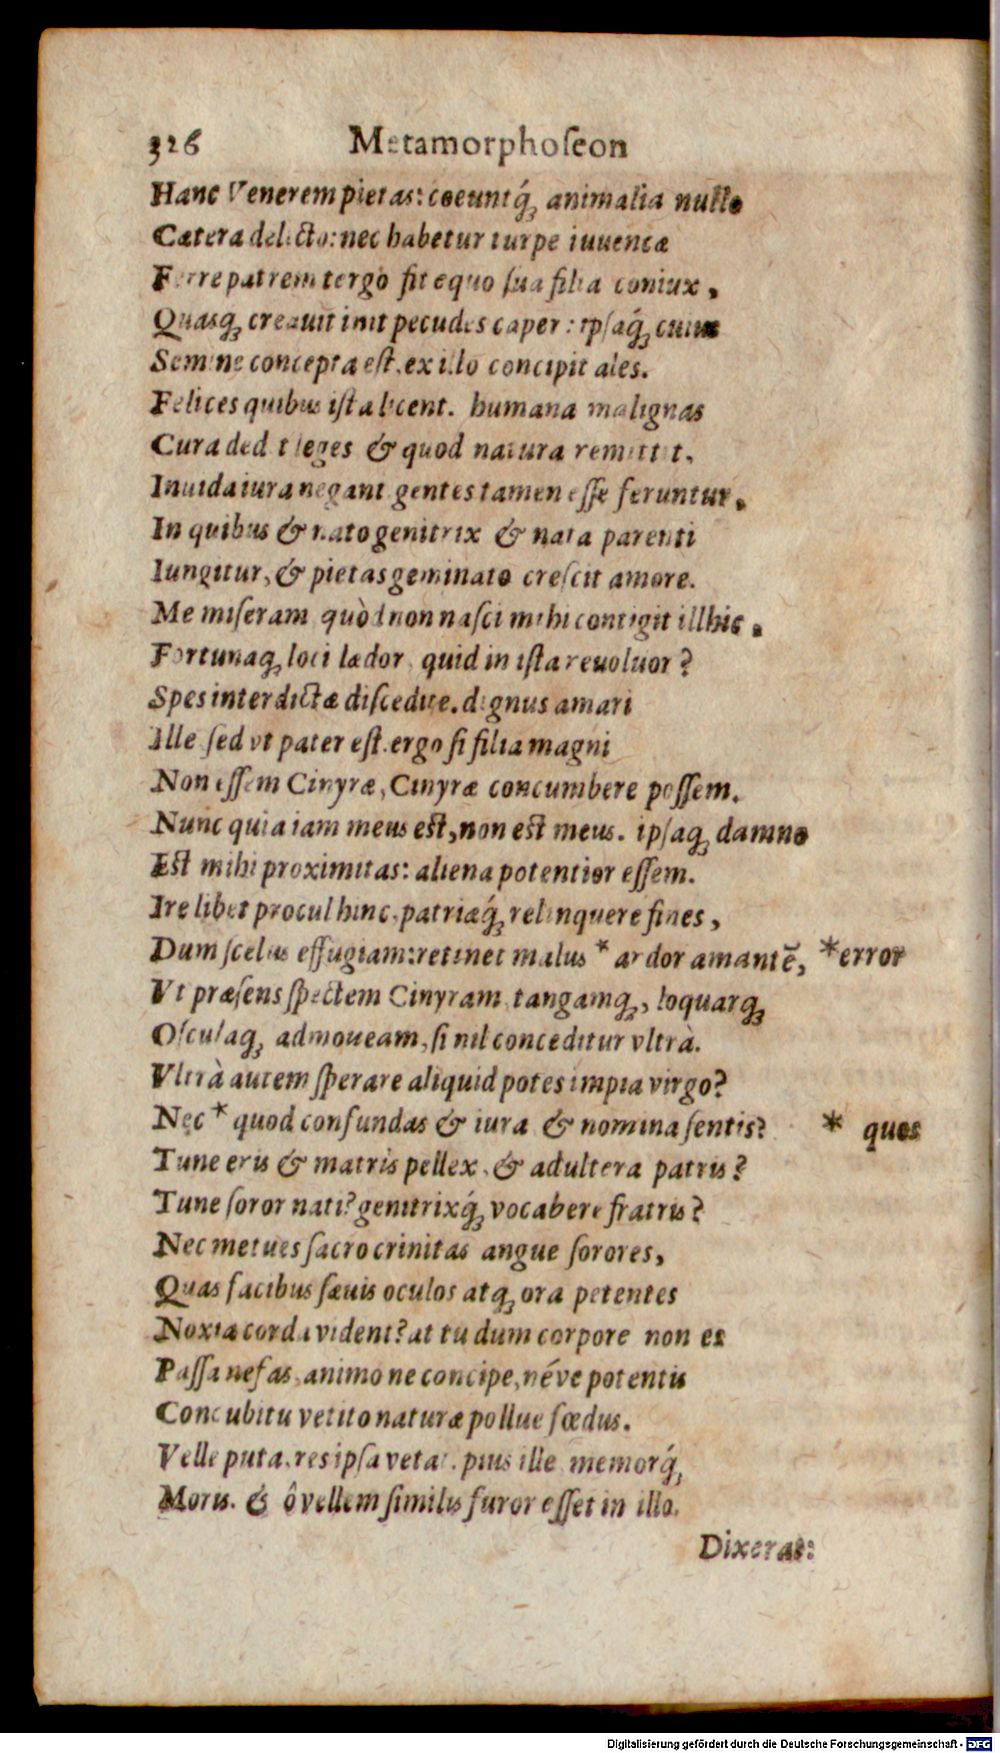 326 Metamorphoſeon
Hanc Venerem pietas: coeuntq́ꝫ animalia nullo
Cætera delicto: nec habetur turpe iuuencæ
Ferre patrem tergo fit equo ſua filia coniux.
Quasqꝫ creauit init pecudes caper: ipſaq́ꝫ cuius
Semine concepta eſt. ex illo concipit ales.
Felices quibus iſta licent. humana malignas
Cura dedit leges & quod natura remittit,
Inuida iura negant gentes tamen eſſe feruntur.
In quibus & nato genitrix & nata parenti
Iungitur, & pietas geminato creſcit amore.
Me miſeram quòd non naſci mihi contigit illhic.
Fortunaqꝫ loci lædor, quid in iſta reuoluor?
Spes interdictæ diſcedite. dignus amari
Ille ſed vt pater eſt. ergo ſi filia magni
Non eſſem Cinyræ, Cinyræ concumbere poſſem.
Nunc quia iam meus est, non est meus. ipſaqꝫ damno
Est mihi proximitas: aliena potentior eſſem.
Ire libet procul hinc, patriæq́ꝫ relinquere fines,
Dum ſcelus effugiam: retinet malus * ardor amantē, *error
Vt præſens ſpectem Cinyram tangamqꝫ, loquarqꝫ
Oſculaqꝫ admoueam, ſi nil conceditur vltrà.
Vltrà autem ſperare aliquid potes impia virgo?
Nec * quod confundas & iura & nomina ſentis? * quos
Tune eris & matris pellex, & adultera patris?
Tune ſoror nati? genitrixq́ꝫ vocabere fratris?
Nec metues ſacro crinitas angue ſorores,
Quas facibus ſæuis oculos atqꝫ ora petentes
Noxia corda vident? at tu dum corpore non es
Paſſa nefas, animo ne concipe, néve potentis
Concubitu vetito naturæ pollue fœdus.
Velle puta. res ipſa vetat. pius ille memorq́ꝫ
Moris. & ô vellem ſimilis furor eſſet in illo.
Dixerat:
Digitalisierung gefördert durch die Deutsche Forschungsgemeinschaft - DFG